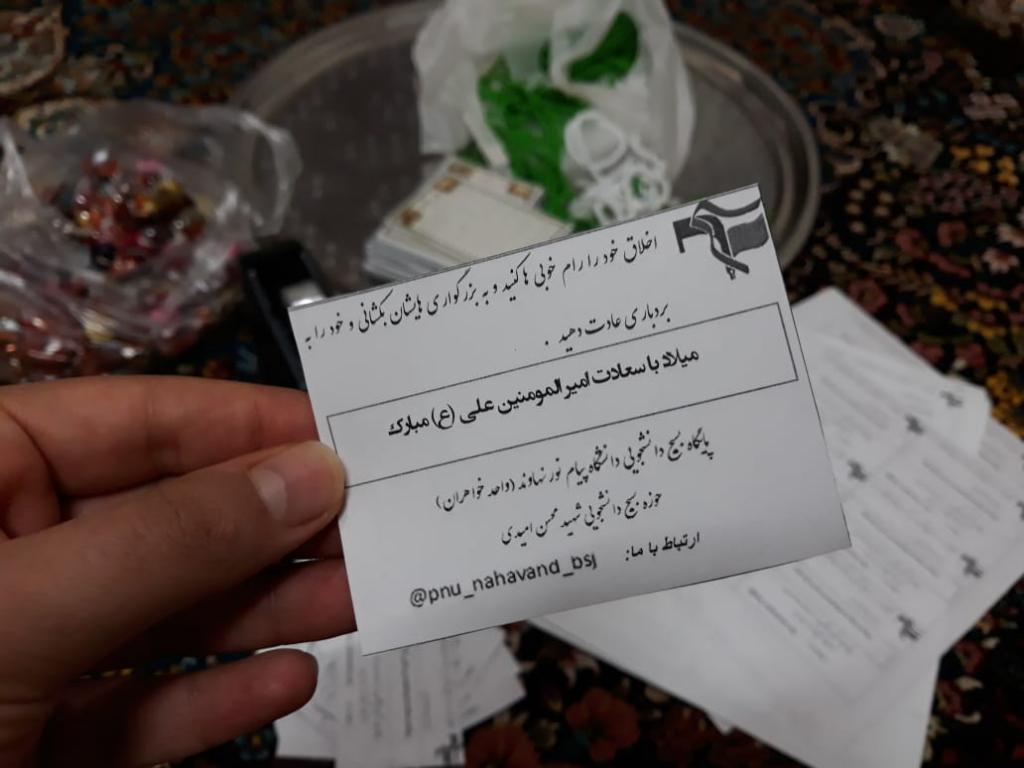 اخلاق خود را رام خوبی ها کنید و به بزرگواری هایشان بکشانی و خود را به
بردباری عادت دهید .
میلاد با سعادت امیر المومنین علی (ع) مبارک
پایگاه بسیج دانشجویی دانشگاه پیام نور نهاوند (واحد خواهران)
حوزه بسیج دانشجویی شهید محسن امیدی
ارتباط با ما: @pnu_nahavand_bsj